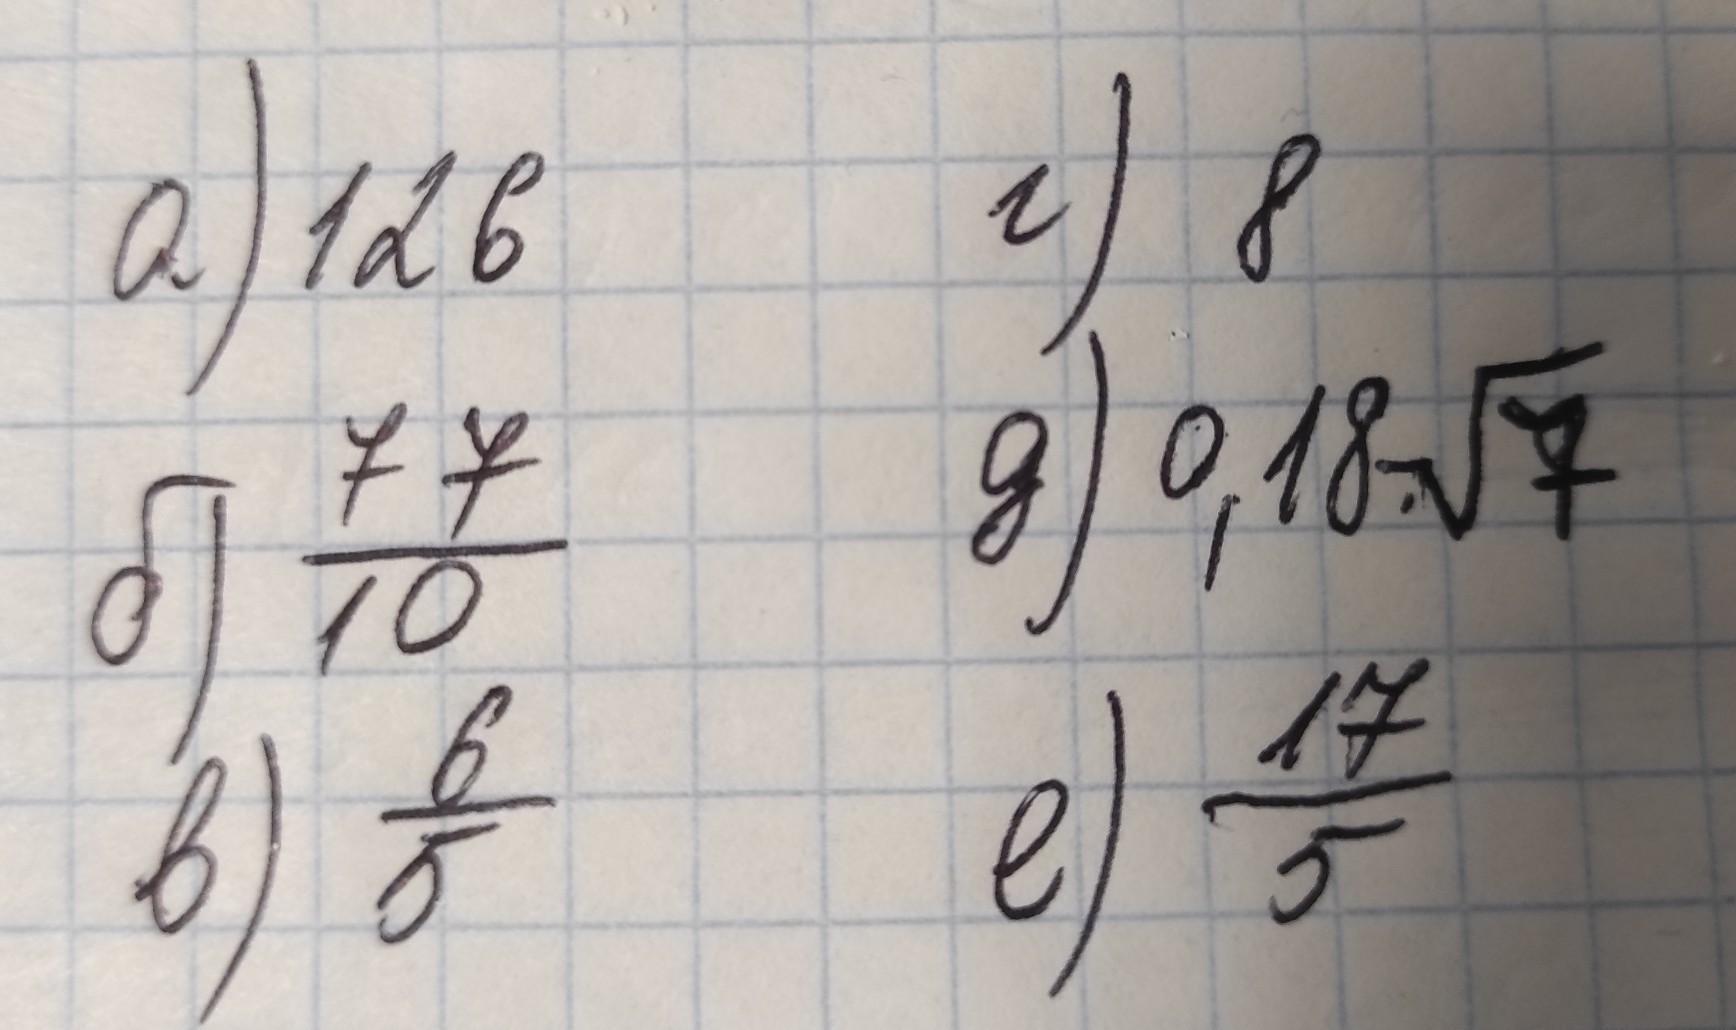 а) 126
б) 77/10
в) 6/5
г) 8
д) 0,18·√7
е) 17/5